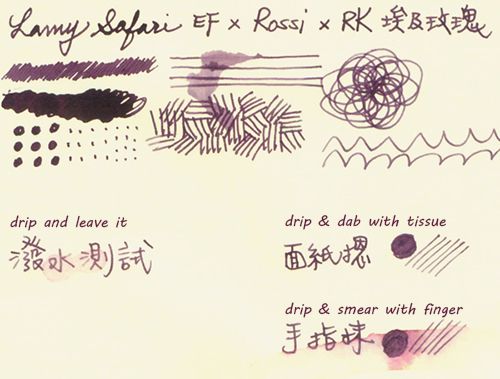 Lamy Safari EF x Rossi x RK 埃及玫瑰
drip and leave it
潑水測試
drip & dab with tissue
面紙摁
drip & smear with finger
手指抹